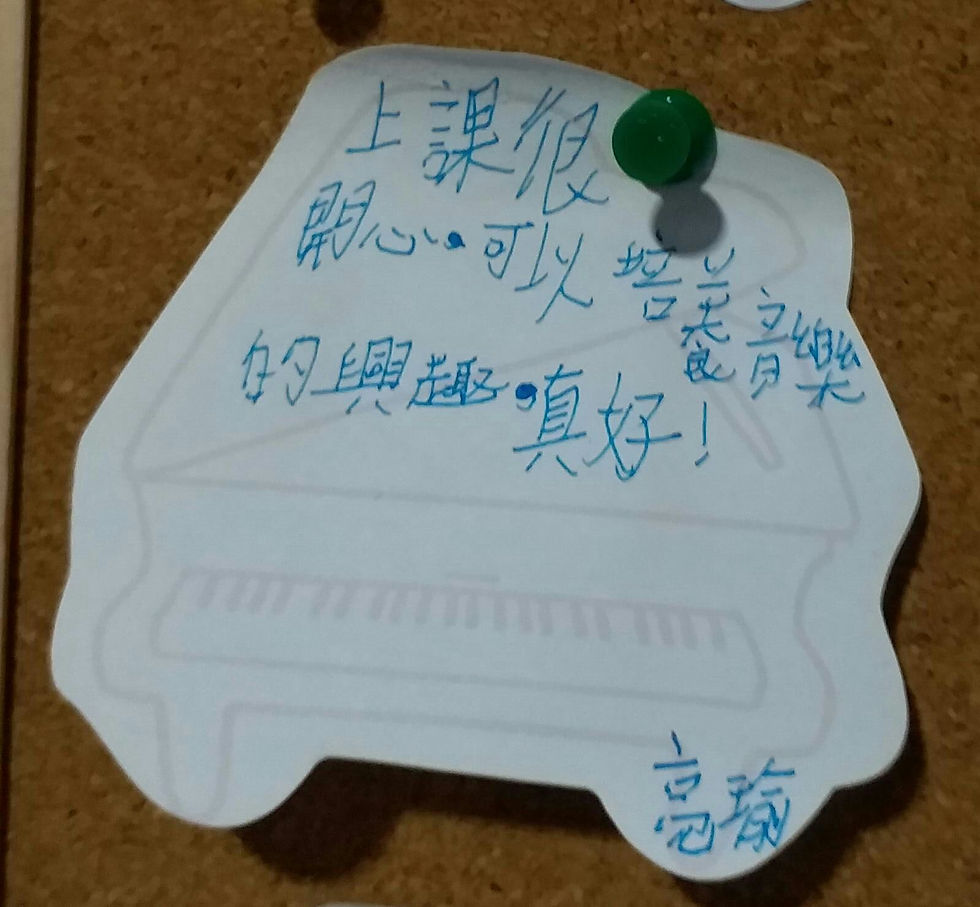 上課很
開心,可以培養音樂
的興趣,真好!
亮瑜